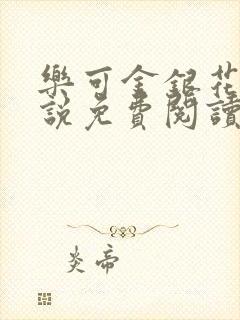 樂可金銀花
說免費閱讀
炎帝